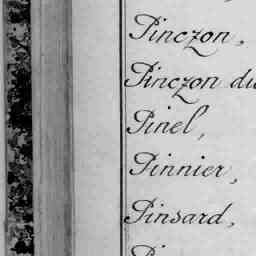 Pinczon,
Pinczon du
Pinel,
Pinnier,
Pinsard,